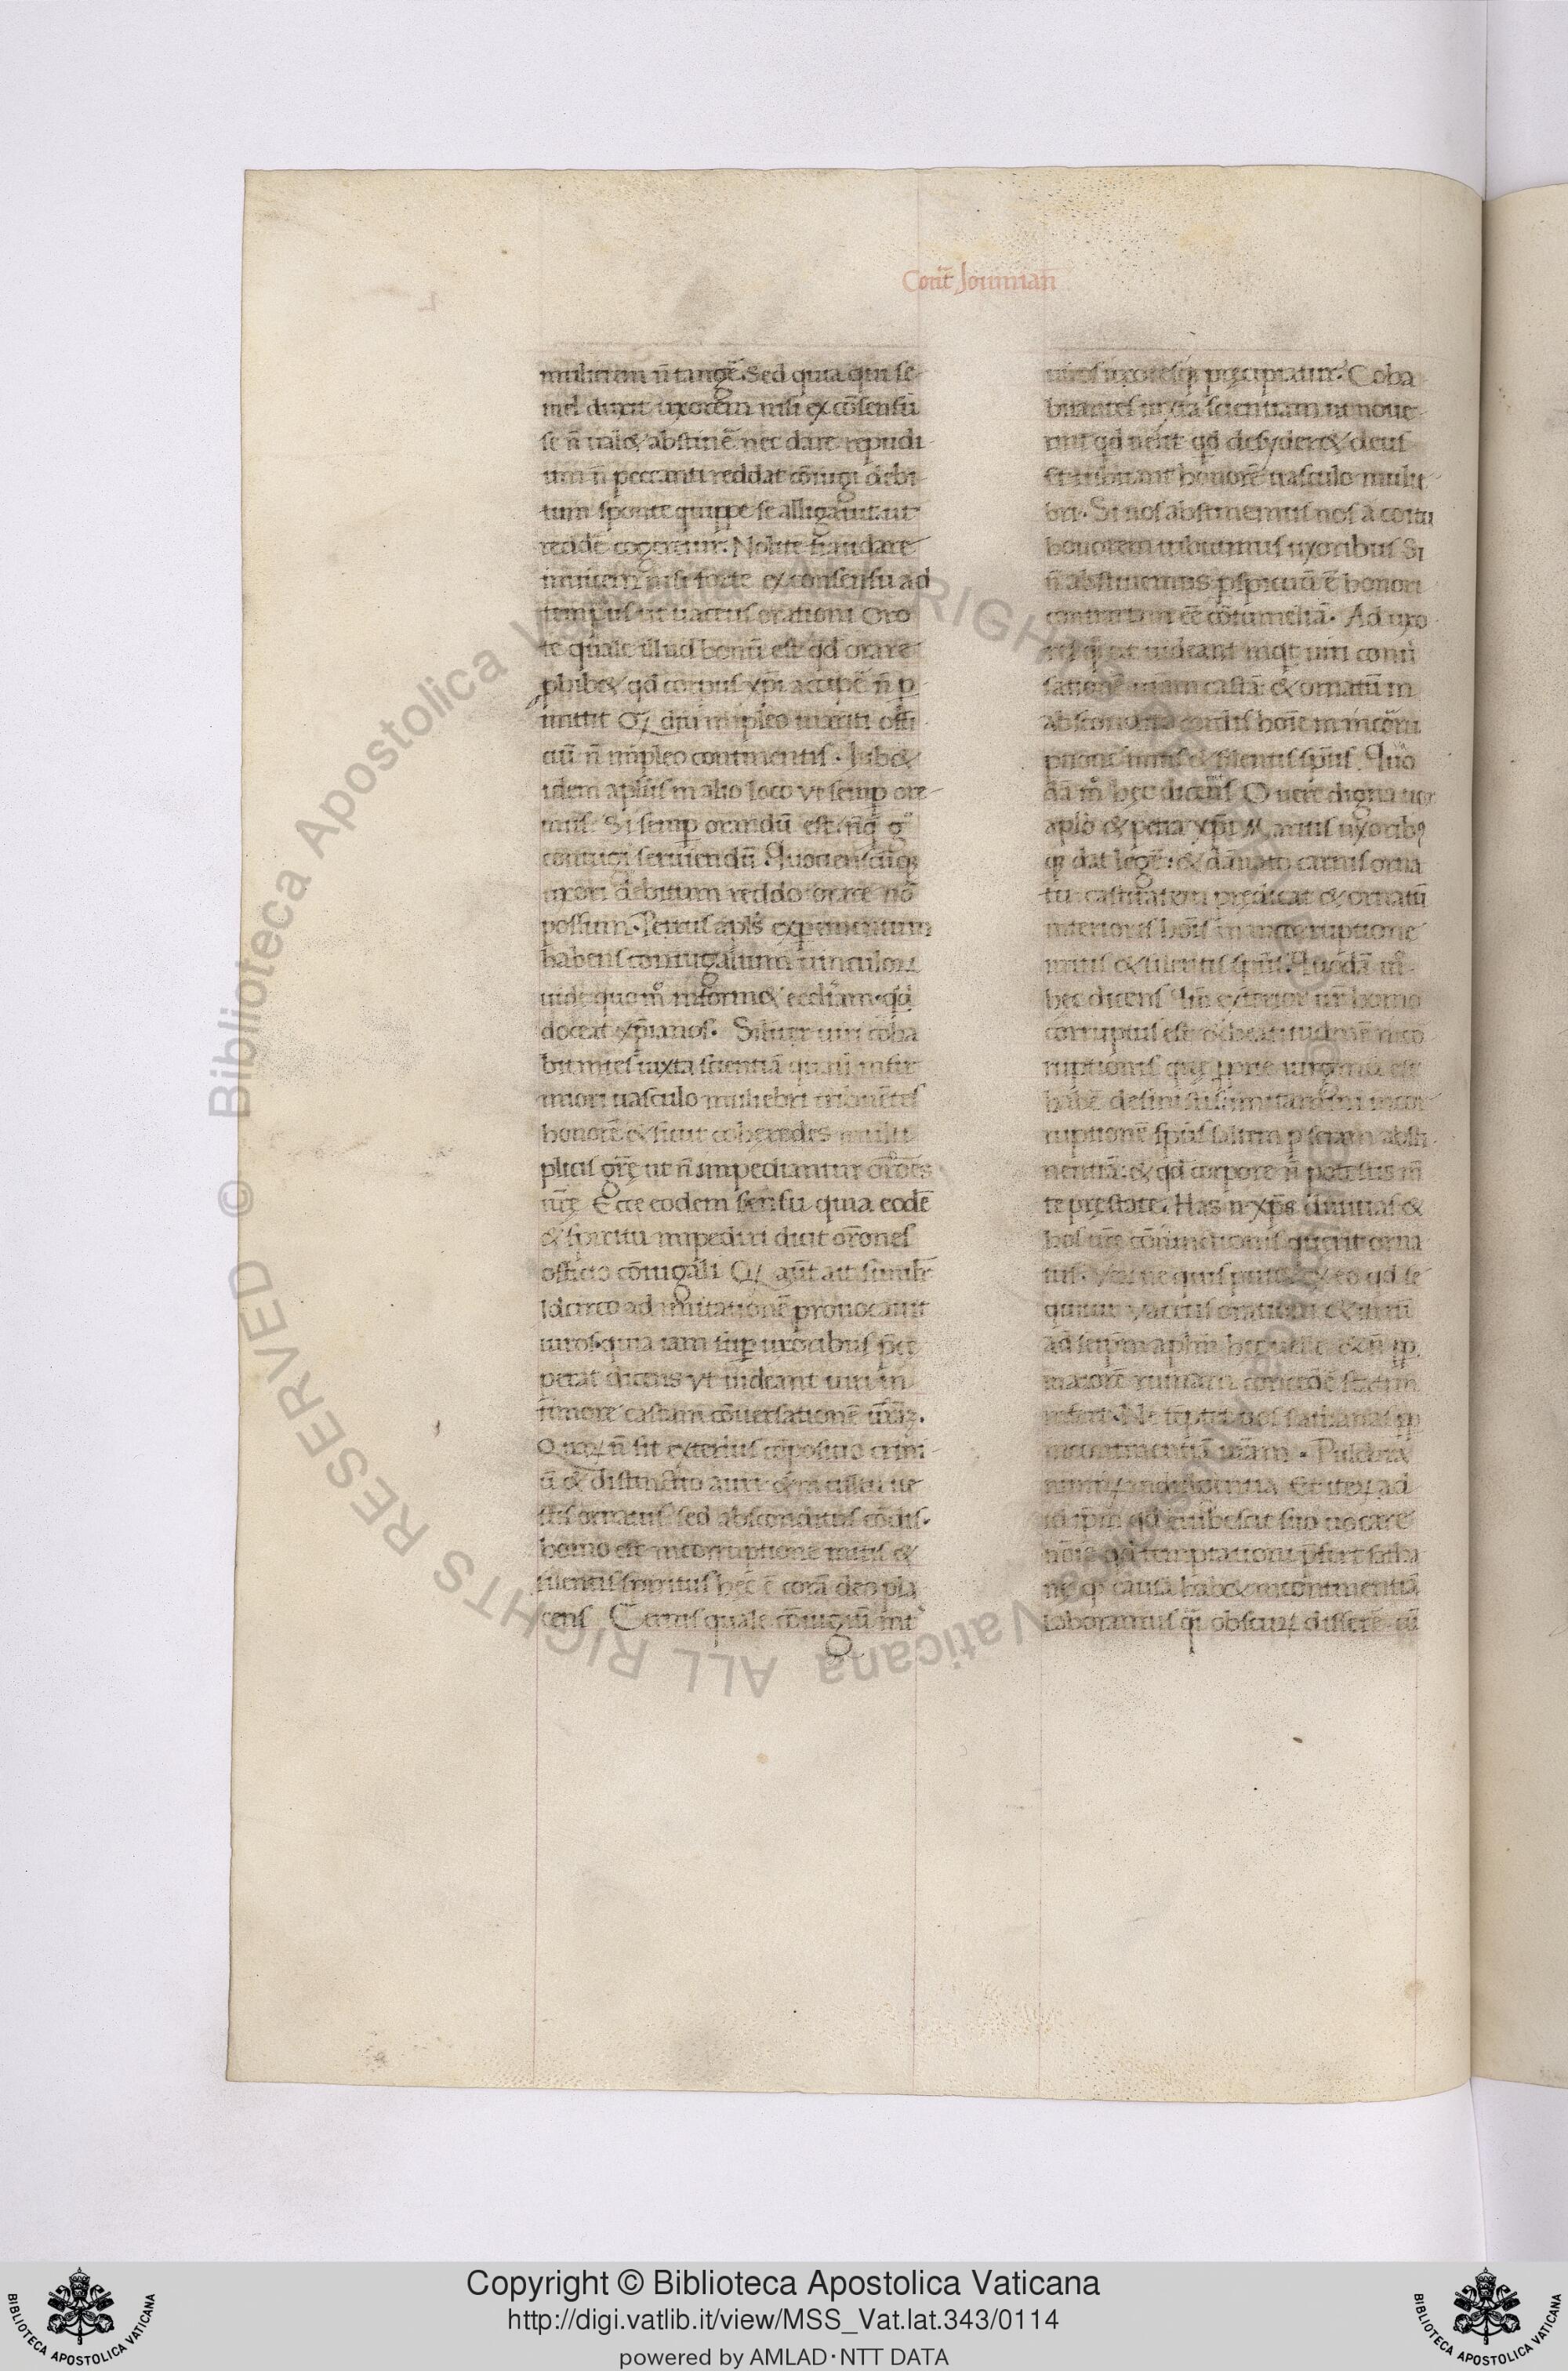 Cont̄ Jouinian̄
mulierem n̄ tangē. Sed quia qui se
mel duxit uxorem nisi ex cōsensu
se n̄ ual& abstinē nec dare repudi
um n̄ peccanti reddat cōiugi debi
tum sponte quippe se alligauit ut
reddē cogeretur. Nolite fraudare
inuicem nisi forte ex consensu ad
tempus ut uacetis orationi Oro
te quale illud bonū est qd orare
phib& qd corpus xp̄i accipē n̄ p
mittit Qͣdiu impleo mariti offi
ciū n̄ impleo continentis. Iub&
idem apl̄us in alio loco vt semp ore
mus. Si semp orandū est nūq̄ g°
coniugi seruiendū Quociensciq
uxori debitum reddo orare nō
possum. Petrus apl̄s experimentum
habens coniugalium uinculoꝝ
uide quom° inform& eccl̄iam. qd
doceat xp̄ianos. Silit̄ uiri coha
bitantes iuxta scientiā quasi infir
miori uasculo muliebri tribuētes
honorē & sicut coheredes multi
plicis grē ut n̄ impediantur ōrōes
ūrē Ecce eodem sensu quia eodē
& spiritu impediri dicit or̄ones
officio cōiugali Qͣ aūt ait simil̄r
Idcirco ad imitationē prouocauit
uiros. quia iam sup uxoribus p̄ce
perat dicens vt uideant uiri in
timore castam cōuersationē ur̄aꝫ.
Quaꝝ n̄ sit exterius cōpositio crini
ū & distinctio auri & in cultu ue
stis ornatus sed absconditus cōdis.
homo est incorruptione mitis &
silentis spiritus hec ē corā deo pla
cens Cernis quale cōiugiū int̄
uiros uxoresq precipiatur. Coha
bitantes iuxta scientiam ut noue
rint qd uelit qd desyder& deus
et tribuant honorē uasculo mulie
bri. Si nos abstinemus nos a coitu
honorem tribuimus uxoribus Si
n̄ abstinemus pspicuū ē honori
contrariam ēē cōtumeliā. Ad uxo
res q̄ ut uideant inqt uiri conu
sationē ur̄am castā & ornatū in
abscondito cordis hoīe in incōru
ptione mitis & silentis sp̄us. Quo
dā m° hec dicens O uere digna uox
aplō & petra xp̄i Maritis uxoribꝯ
q dat legē: & dānato carnis orna
tu castitatem predicat & ornatū
interioris hoīs in incorruptione
mitis & silentis sp̄us. Quodā m°
hec dicens Qm̄ exterior ur̄ homo
corruptus est & beatitudinē inco
ruptionis que pprie uirginū est
habē desinistis imitamini incor
ruptionē sp̄us saltim p seram absti
nentiā: & qd corpore n̄ potestis m̄
te prestate. Has n̄ xp̄s diuitias &
hos ur̄e cōiunctionis querit orna
tus. Vox ne quis putet ex eo qd se
quitur vacetis orationi & iterū
ad ip̄m apl̄m hec uelle & n̄ pp
maiorē ruinam concedē statim
infert. Ne tēptet uos sathanas pp
incontinentiā ur̄am. Pulchra
nimiꝝ indulgentia Et iteꝝ ad
id ip̄m qd erubescit suo uocare
nōie qd temptationi p̄fert satha
ne q causā hab& incontinentiā
laboramus q̄i obscuꝝ disserē cū